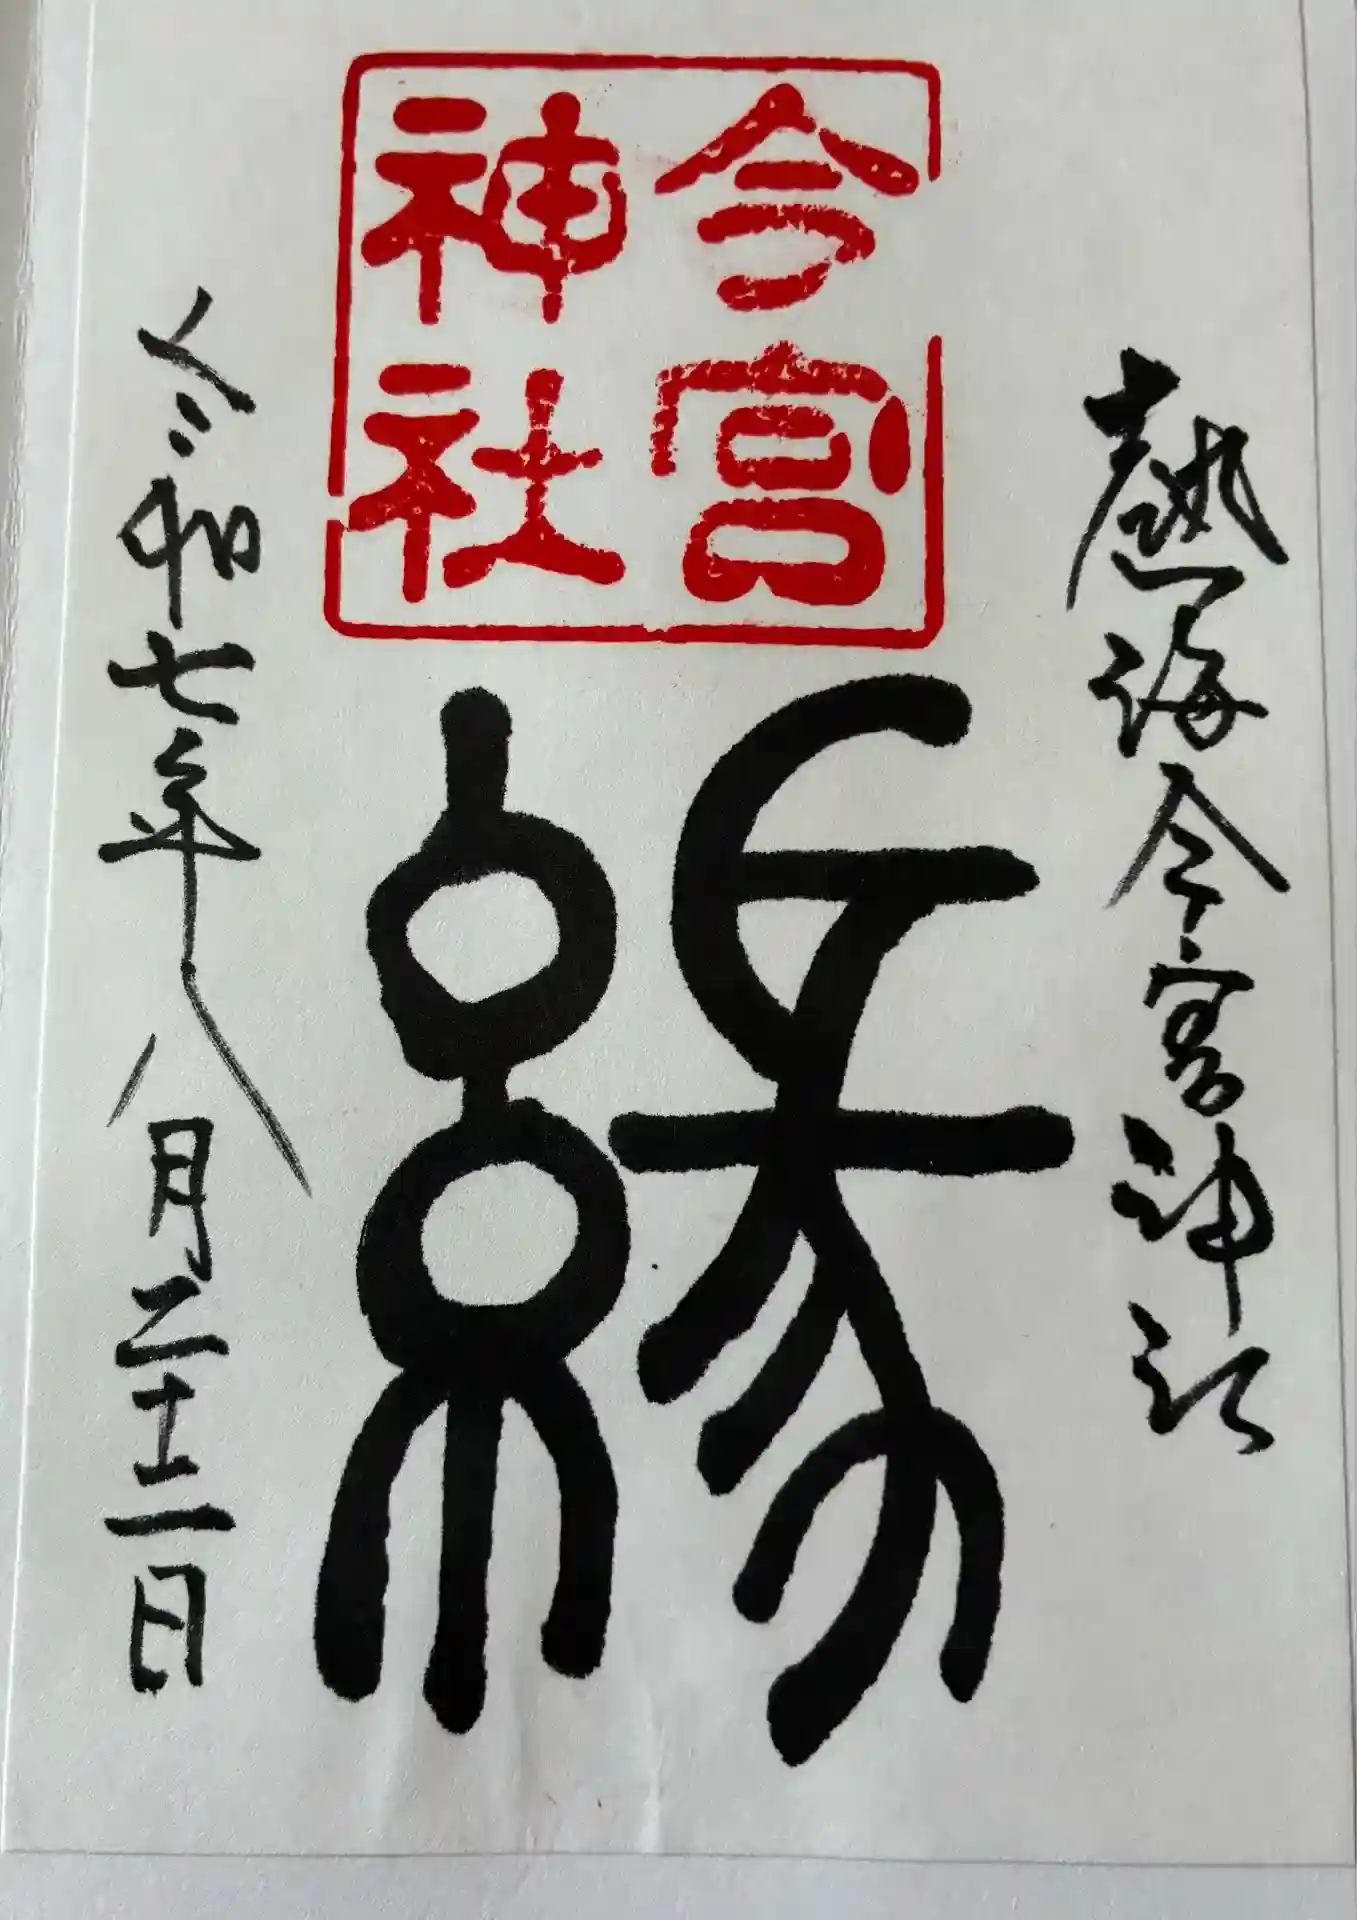 熱海今宮神社
今宮
神社
縁
令和七年八月二十一日